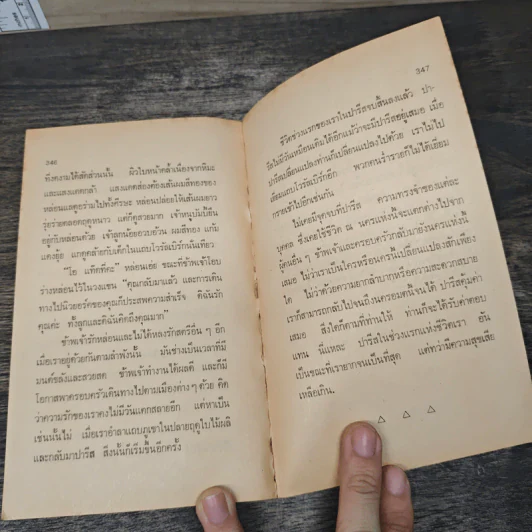 346
ซึ่งคงามได้สัดส่วนนั้น ผิวใบหน้าคล้ำเนื่องจากหิมะ
และแสงแดดกล้า แสงแดดส่องต้องเส้นผมสีทองของ
หล่อนแลดูอร่ามไปทั้งศีรษะ หล่อนปล่อยให้เส้นผมยาว
รุ่ยร่ายตลอดฤดูหนาว แต่ก็ดูสวยมาก เจ้าหนูบัมบี้ยืน
อยู่กับหล่อนด้วย เจ้าลูกน้อยอวบอ้วน ผมสีทอง แก้ม
แดงจุ้ย แลดูคล้ายกับเด็กในแถบโวรัลเบิร์กนั้นเทียว
"โอ แท็ตตี้คะ" หล่อนเอ่ย ขณะที่ข้าพเจ้าโอบ
ร่างหล่อนไว้ในวงแขน "คุณกลับมาแล้ว และการเดิน
ทางไปนิวยอร์คของคุณก็ประสพความสำเร็จ ดิฉันรัก
คุณค่ะ ทั้งลูกและดิฉันคิดถึงคุณมาก"
ข้าพเจ้ารักหล่อนและไม่ได้หลงรักสตรีอื่น ๆ อีก
เมื่อเราอยู่ด้วยกันตามลำพังนั้น มันช่างเป็นเวลาที่มี
มนต์ขลังและสวยสด ข้าพเจ้าทำงานได้ผลดี และก็มี
โอกาสพาครอบครัวเดินทางไปตามเมืองต่าง ๆ ด้วย คิด
ว่าความรักของเราคงไม่มีวันแตกสลายอีก แต่หาเป็น
เช่นนั้นไม่ เมื่อเราอำลาแถบภูเขาในปลายฤดูใบไม้ผลิ
และกลับมาปารีส สิ่งนั้นก็เริ่มขึ้นอีกครั้ง
347
ชีวิตช่วงแรกของเราในปารีสจบสิ้นลงแล้ว ปา-
รีสไม่มีวันเหมือนเดิมได้อีกแม้ว่าจะมีปารีสอยู่เสมอ เมื่อ
ปารีสเปลี่ยนแปลงท่านก็เปลี่ยนแปลงไปด้วย เราไม่ไป
เยือนแถบโวรัลเบิร์กอีก พวกคนร่ำรวยก็ไม่ได้เยี่ยม
กรายเข้าไปอีกเช่นกัน
ไม่เคยมีจุดจบที่ปารีส ความทรงจำของแต่ละ
บุคคล ซึ่งเคยใช้ชีวิต ณ นครแห่งนั้นจะแตกต่างไปจาก
ผู้คนอื่น ๆ ข้าพเจ้าและครอบครัวกลับมายังนครแห่งนี้
เสมอ ไม่ว่าเราเป็นใครหรือนครนั้นเปลี่ยนแปลงสักเพียง
ใด ไม่ว่าด้วยความยากลำบากหรือความสะดวกสบาย
เราก็สามารถกลับไปจนถึงนครอมตนี้จนได้ ปารีสคุ้มค่า
เสมอ สิ่งใดก็ตามที่ท่านให้ ท่านก็จะได้รับคำตอบ
แทน นี่แหละ ปารีสในช่วงแรกแห่งชีวิตเรา อัน
เป็นขณะที่เรายากจนเป็นที่สุด แต่ทว่ามีความสุขเสีย
เหลือเกิน.